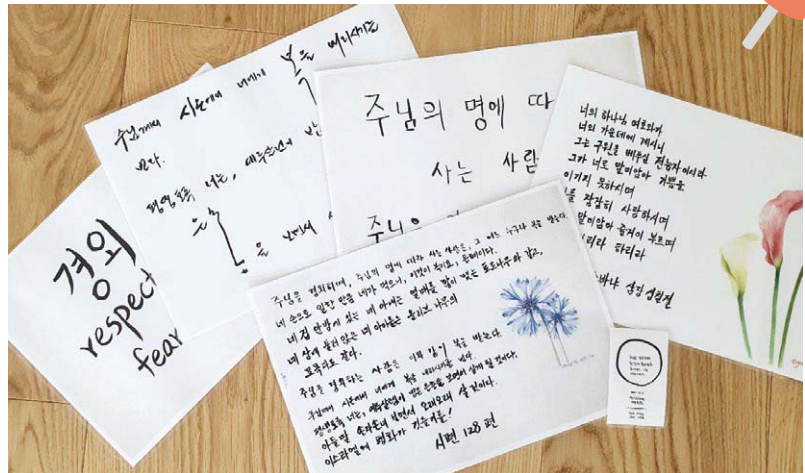 경외
respect
fear
주님께서 시온에서 너에게 복을 내리시기를
빈다.
평생토록 너는,
을
주님의 명에 따
사는 사람
너의 하나님 여호와가
너의 가운데에 계시니
그는 구원을 베푸실 전능자이시라
그가 너로 말미암아 기쁨을
이기지 못하시며
를 잠잠히 사랑하시며
말미암아 즐거이 부르며
하리라
삼장 십칠절
주님을 경외하며, 주님의 명에 따라 사는 사람은, 그 어느 누구나 복을 받는다.
네 손으로 일한 만큼 네가 먹으니, 이것이 복이요, 은혜이다.
네 집 안방에 있는 네 아내는 열매를 많이 맺는 포도나무와 같고,
네 상에 둘러 앉은 네 아이들은 올리브 나무의
묘목과도 같다.
주님을 경외하는 사람은 이와 같이 복을 받는다.
주님께서 시온에서 너에게 복을 내리시기를 빈다.
평생토록 너는, 예루살렘이 받은 은총을 보면서 살게 될 것이다.
아들딸 손자손녀 보면서 오래오래 살 것이다.
이스라엘에 평화가 깃들기를!
시편 128편